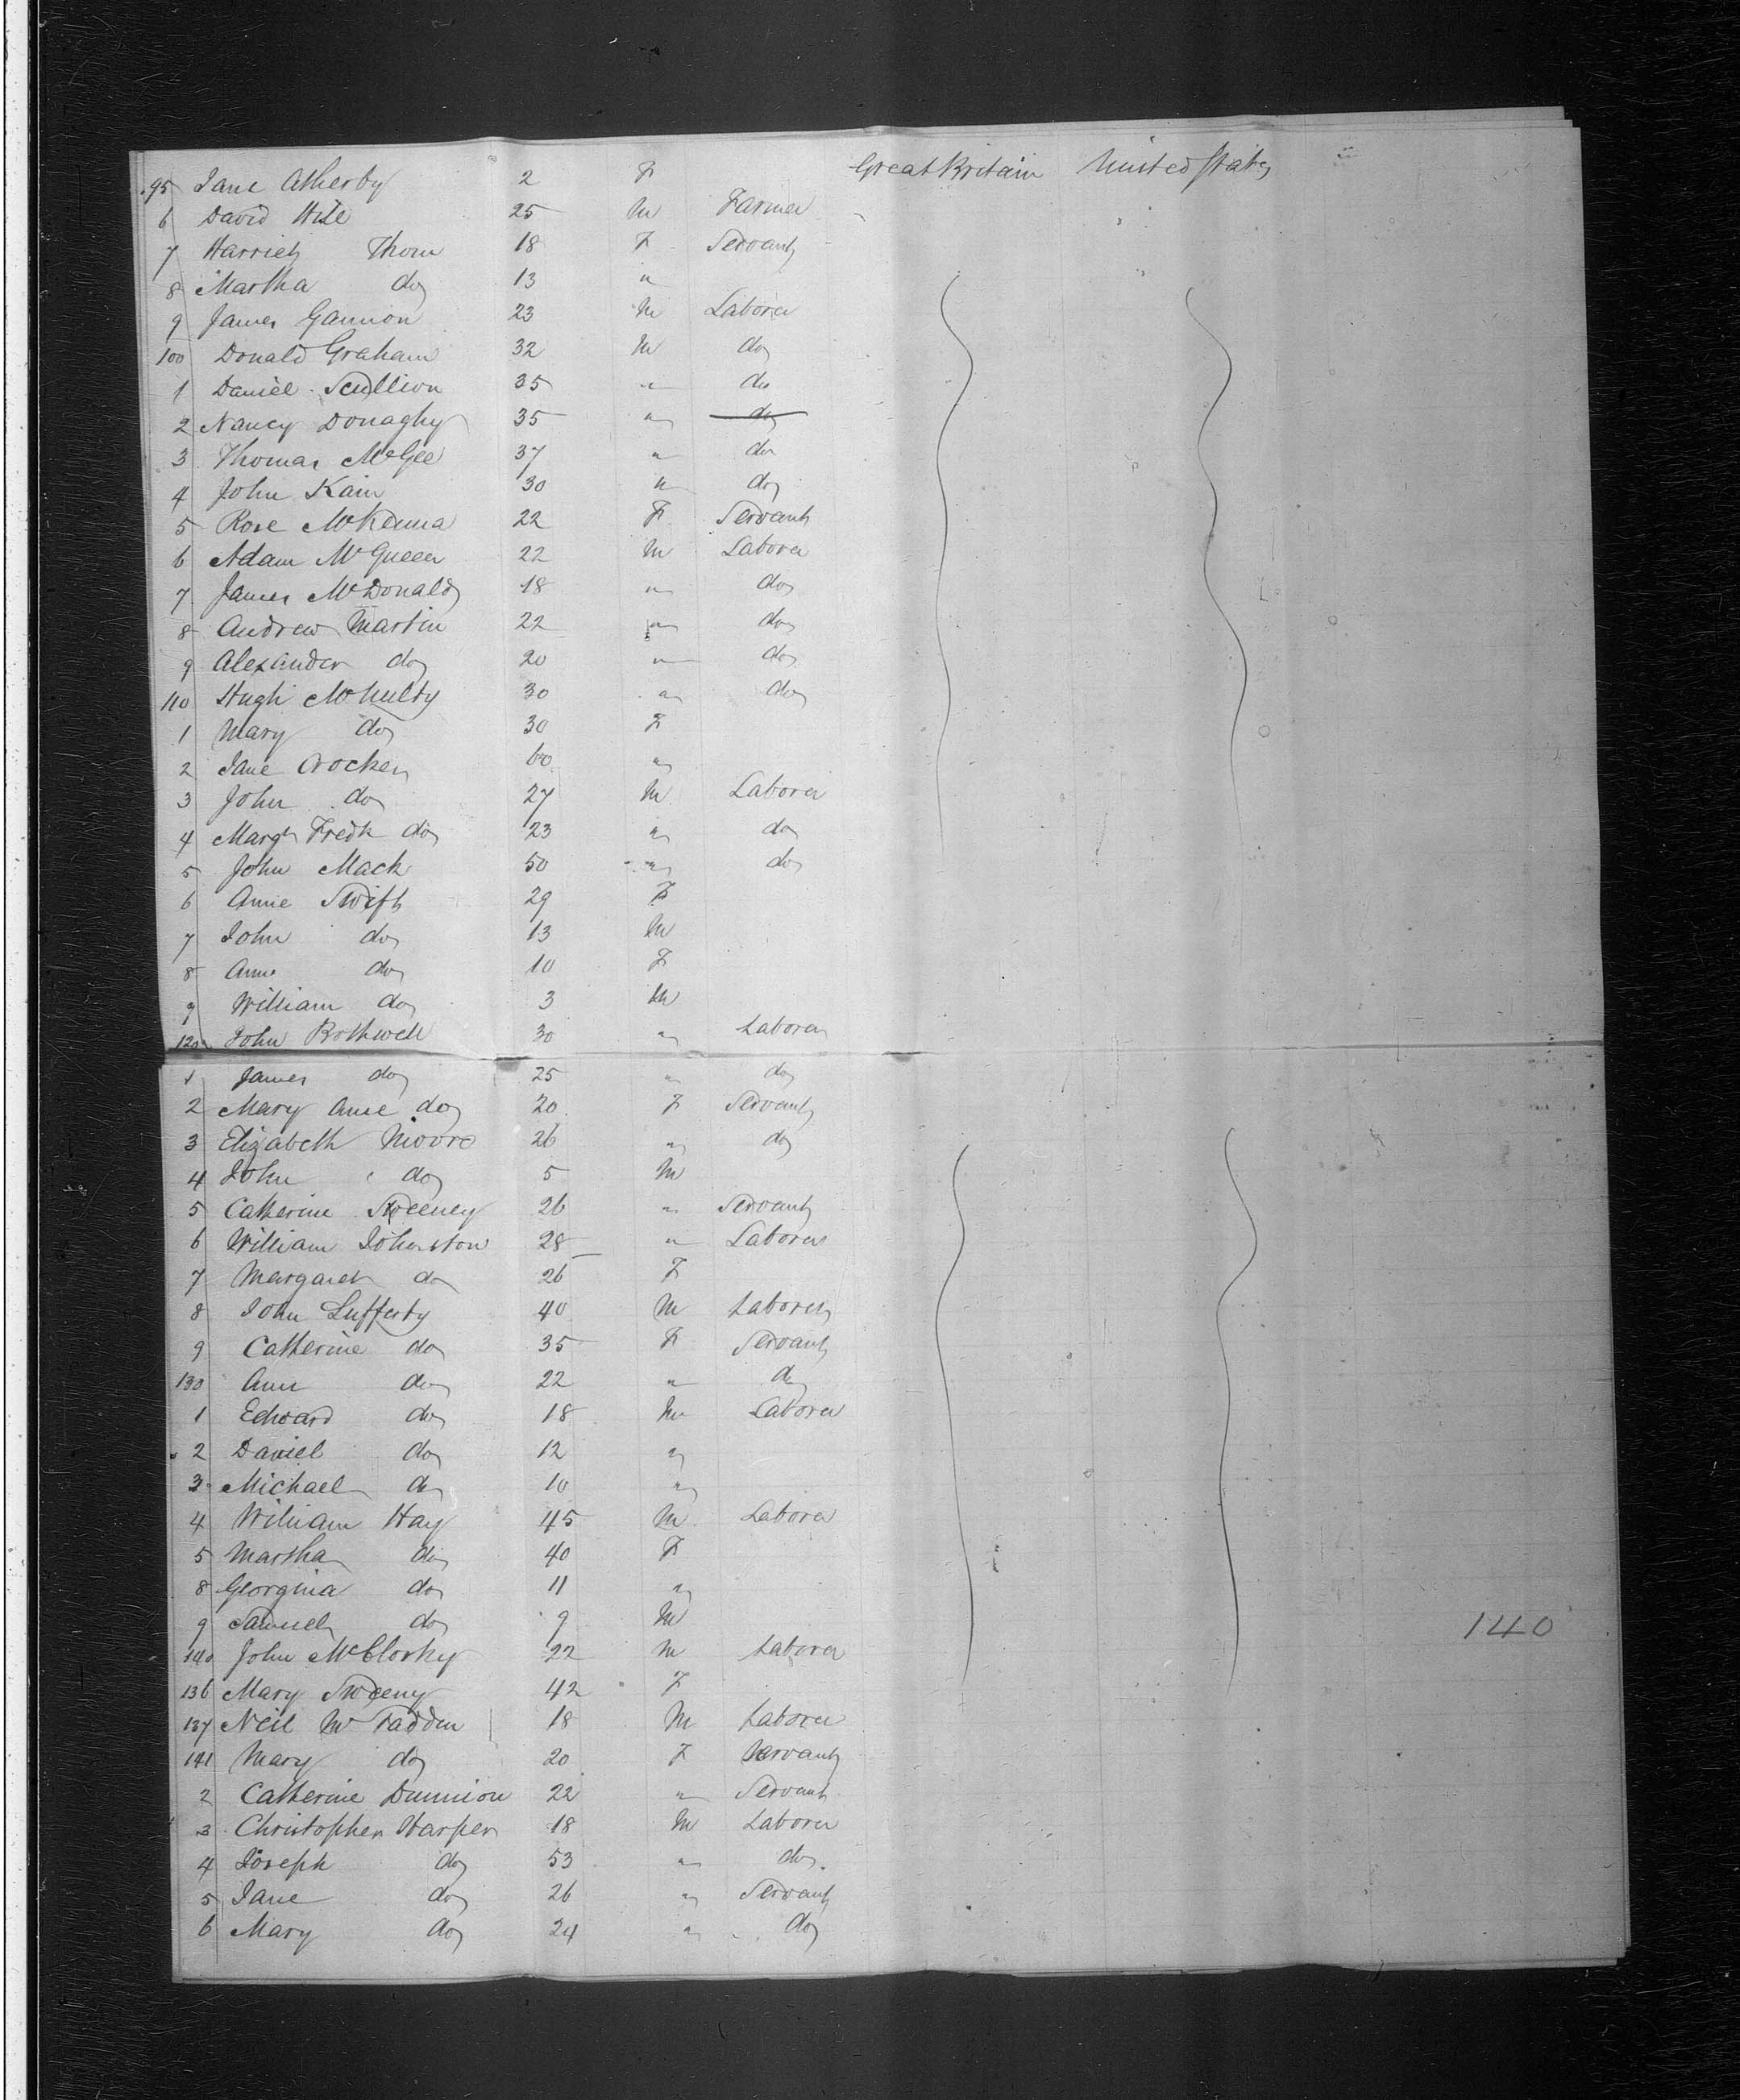 95 Jane Atherby 2 F Great Britain United States
6 David Hill 25 M Farmer
7 Harriet Thom 18 F Servant
8 Martha do 13 "
9 James Gannon 23 M Laborer
100 Donald Graham 32 M do
1 Daniel Scullion 35 " do
2 Nancy Donaghy 35 " do
3 Thomas McGee 37 " do
4 John Kain 30 " do
5 Rose McKenna 22 F Servant
6 Adam McQueen 22 M Laborer
7 James McDonald 18 " do
8 Andrew Martin 22 " do
9 Alexander do 20 " do
110 Hugh McNulty 30 " do
1 Mary do 30 F
2 Jane Crocker 60 "
3 John do 27 M Laborer
4 Margt Fredk do 23 " do
5 John Mack 50 " do
6 Anne Swift 29 F
7 John do 13 M
8 Anne do 10 F
9 William do 3 M
120 John Rothwell 30 " Laborer
1 James do 25 " do
2 Mary Anne do 20 F Servant
3 Elizabeth Moore 26 " do
4 John do 5 M
5 Catherine Sweeney 26 " Servant
6 William Johnston 28 " Laborer
7 Margaret do 26 F
8 John Lufferty 40 M Laborer
9 Catherine do 35 F Servant
130 Ann do 22 " do
1 Edward do 18 M Laborer
2 Daniel do 12 "
3 Michael do 10 "
4 William Hay 45 M Laborer
5 Martha do 40 F
8 Georgina do 11 "
9 Samuel do 9 M 140
140 John McClorky 22 M Laborer
136 Mary Sweeny 42 F
137 Neil McFadden 18 M Laborer
141 Mary do 20 F Servant
2 Catherine Dunnion 22 " Servant
3 Christopher Harper 18 M Laborer
4 Joseph do 53 " do
5 Jane do 26 " Servant
6 Mary do 24 " do